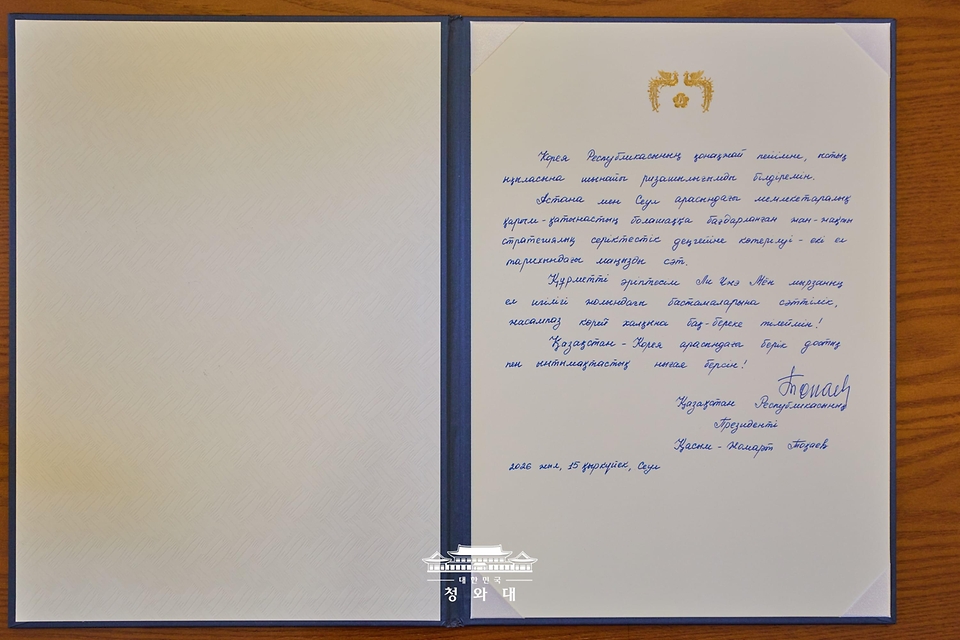 Корея Республикасының қонақжай пейіліне, ыстық
ықыласына шынайы ризашылығымды білдіремін.
Астана мен Сеул арасындағы мемлекетаралық
қарым-қатынастың болашаққа бағдарланған жан-жақты
стратегиялық серіктестік деңгейіне көтерілуі - екі ел
тарихындағы маңызды сәт.
Құрметті әріптесім Ли Чжэ Мён мырзаның
ел игілігі жолындағы бастамаларына сәттілік,
жасампаз корей халқына бақ-береке тілеймін!
Қазақстан - Корея арасындағы берік достық
пен ынтымақтастық нығая берсін!
Тоқаев
Қазақстан Республикасының
Президенті
Қасым-Жомарт Тоқаев
2026 жыл, 15 қыркүйек, Сеул
대한민국
청와대